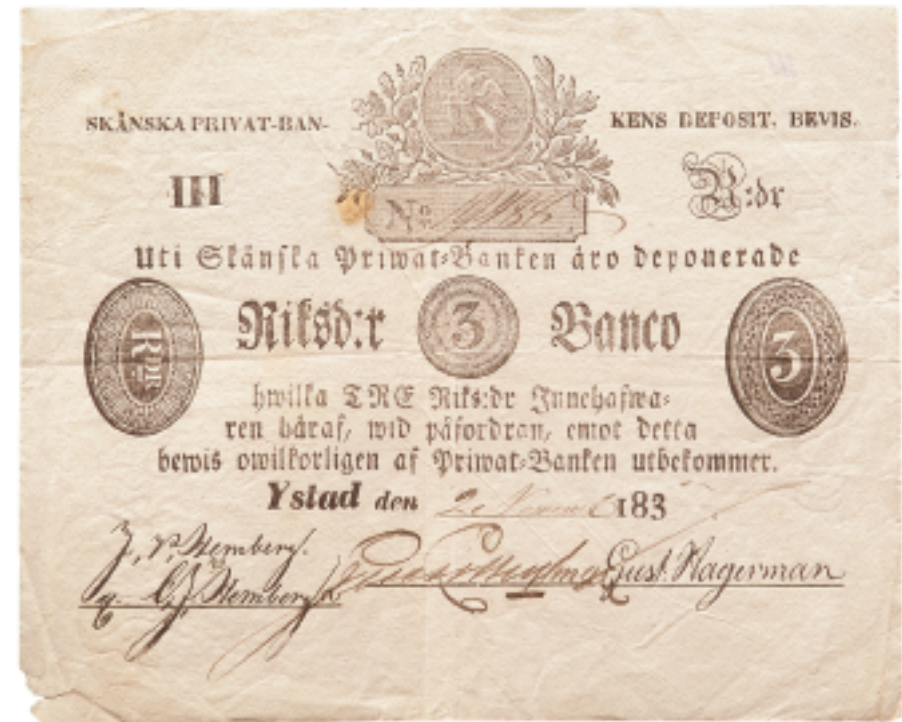 SKÅNSKA PRIVAT-BAN- KENS DEPOSIT. BEVIS.
III R:dr
No
Uti Skånska Priwat-Banken äro deponerade
RDR Riksd:r 3 Banco 3
hwilka TRE Riks:dr Innehafwa-
ren häraf, wid påfordran, emot detta
bewis owilkorligen af Priwat-Banken utbekommer.
Ystad den 2 Novemb 183
Gust. Hagerman